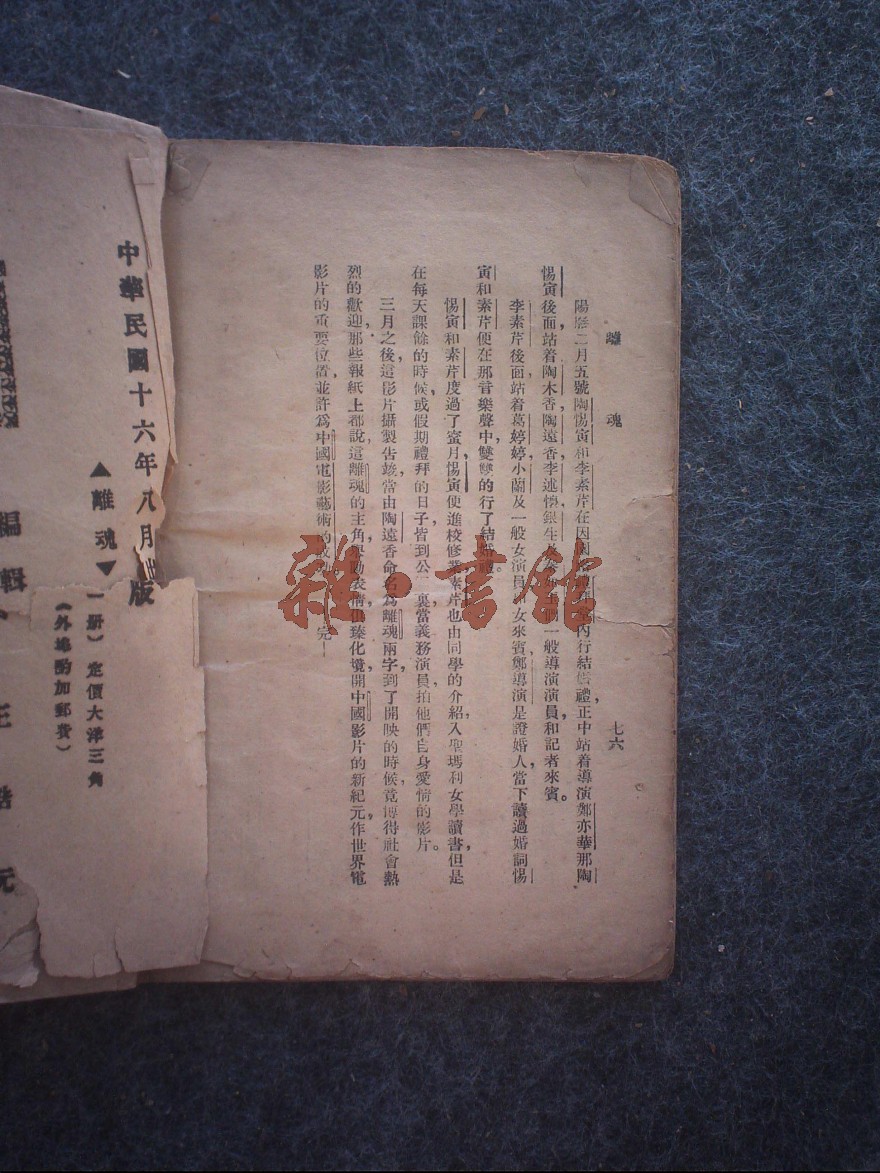 離魂
七六
陽曆二月五號陶惕寅和李素芹在因內行結婚禮，正中站着導演鄭亦華那陶
惕寅後面，站着陶木香，陶遠香，李述懷，銀生及一般導演演員，和記者來賓。
李素芹後面，站着葛婷婷，小蘭，及一般女演員，女來賓，鄭導演是證婚人，當下讀過婚詞，惕
寅和素芹便在那音樂聲中，雙雙的行了結婚禮。
惕寅和素芹度過了蜜月，惕寅便進校修業，素芹也由同學的介紹，入聖瑪利女學讀書，但是
在每天課餘的時候，或假期禮拜的日子，皆到公裏當義務演員，拍他們自身愛情的影片。
三月之後，這影片攝製告竣，當由陶遠香命名為離魂兩字，到了開映的時候，竟博得社會熱
烈的歡迎，那些報紙上都說，這離魂的主角，舉動表情，俱臻化境，開中國影片的新紀元，作世界電
影片的重要位置，並許爲中國電影藝術的完！
中華民國十六年八月出版
▲離魂▼（一册）定價大洋三角
（外埠酌加郵費）
編輯
元
雜·書館